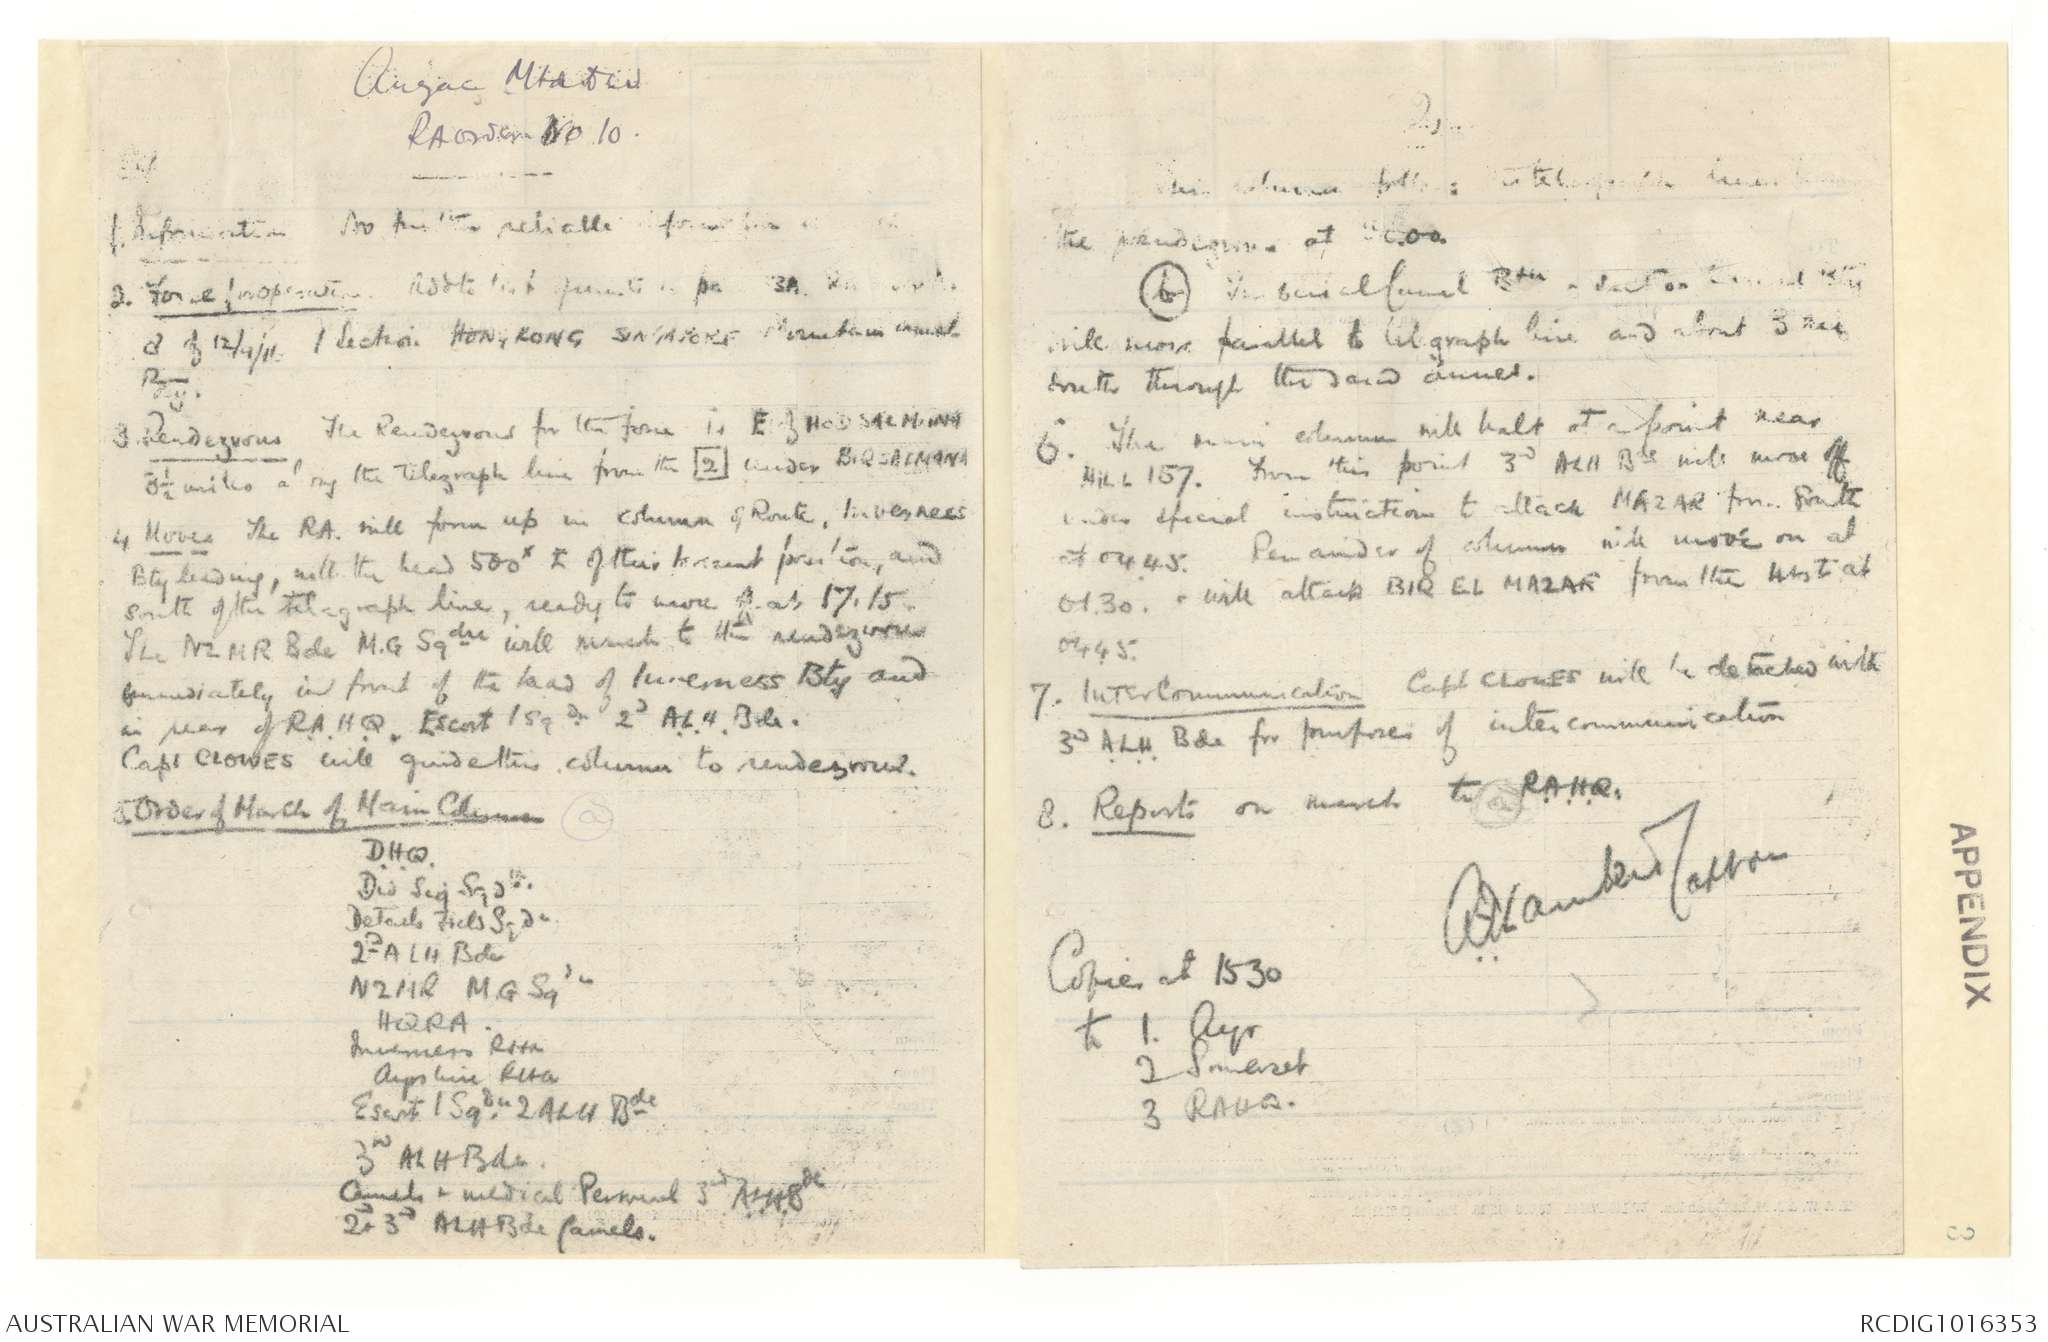 Anzac Mtd Div
RA Order No 10.
1. Information No further reliable information
2. Force for operation. Add to list para 3A.
of 12/9/16 1 Section HONG KONG SINGAPORE Mountain Camel
Bty.
3. Rendezvous The Rendezvous for the force is E of HOD SALMANA
3½ miles along the telegraph line from the 2 under BIR SALMANA
4 Moves The RA. will form up in column of Route, Inverness
Bty leading, with the head 500x E of their present position, and
south of the telegraph line, ready to move off at 17.15.
The NZMR Bde M.G Sqdn will march to the rendezvous
immediately in front of the head of Inverness Bty and
in rear of R.A.H.Q. Escort 1 Sqdn 2d A.L.H. Bde.
Capt CLOWES will guide this column to rendezvous.
5. Order of March of Main Column (a)
D.H.Q.
Div Sig Sqdn.
Details Field Sqdn.
2nd ALH Bde
NZMR M.G Sqdn
HQRA.
Inverness RHA
Ayrshire RHA
Escort 1 Sqdn. 2 ALH Bde
3rd ALH Bde.
Camels + medical Personnel 3rd A.L.H.Bde
2d + 3d ALH Bde Camels.
2.
column telegraph line
the rendezvous at
(b) Imperial Camel Bde
will move parallel to telegraph line and about 3
south through the sand dunes.
6. The main column will halt at a point near
HILL 157. From this point 3d ALH Bde will move off
under special instructions to attack MAZAR from South
at 04.45. Remainder of column will move on at
01.30. + will attack BIR EL MAZAR from the West at
04.45.
7. InterCommunication Capt CLOWES will be detached with
3d A.L.H. Bde for purposes of intercommunication
8. Reports on march to R.A.H.Q.
Copies at 1530
to 1. Ayr
2 Somerset
3 RAHQ.
APPENDIX
3
AUSTRALIAN WAR MEMORIAL
RCDIG1016353